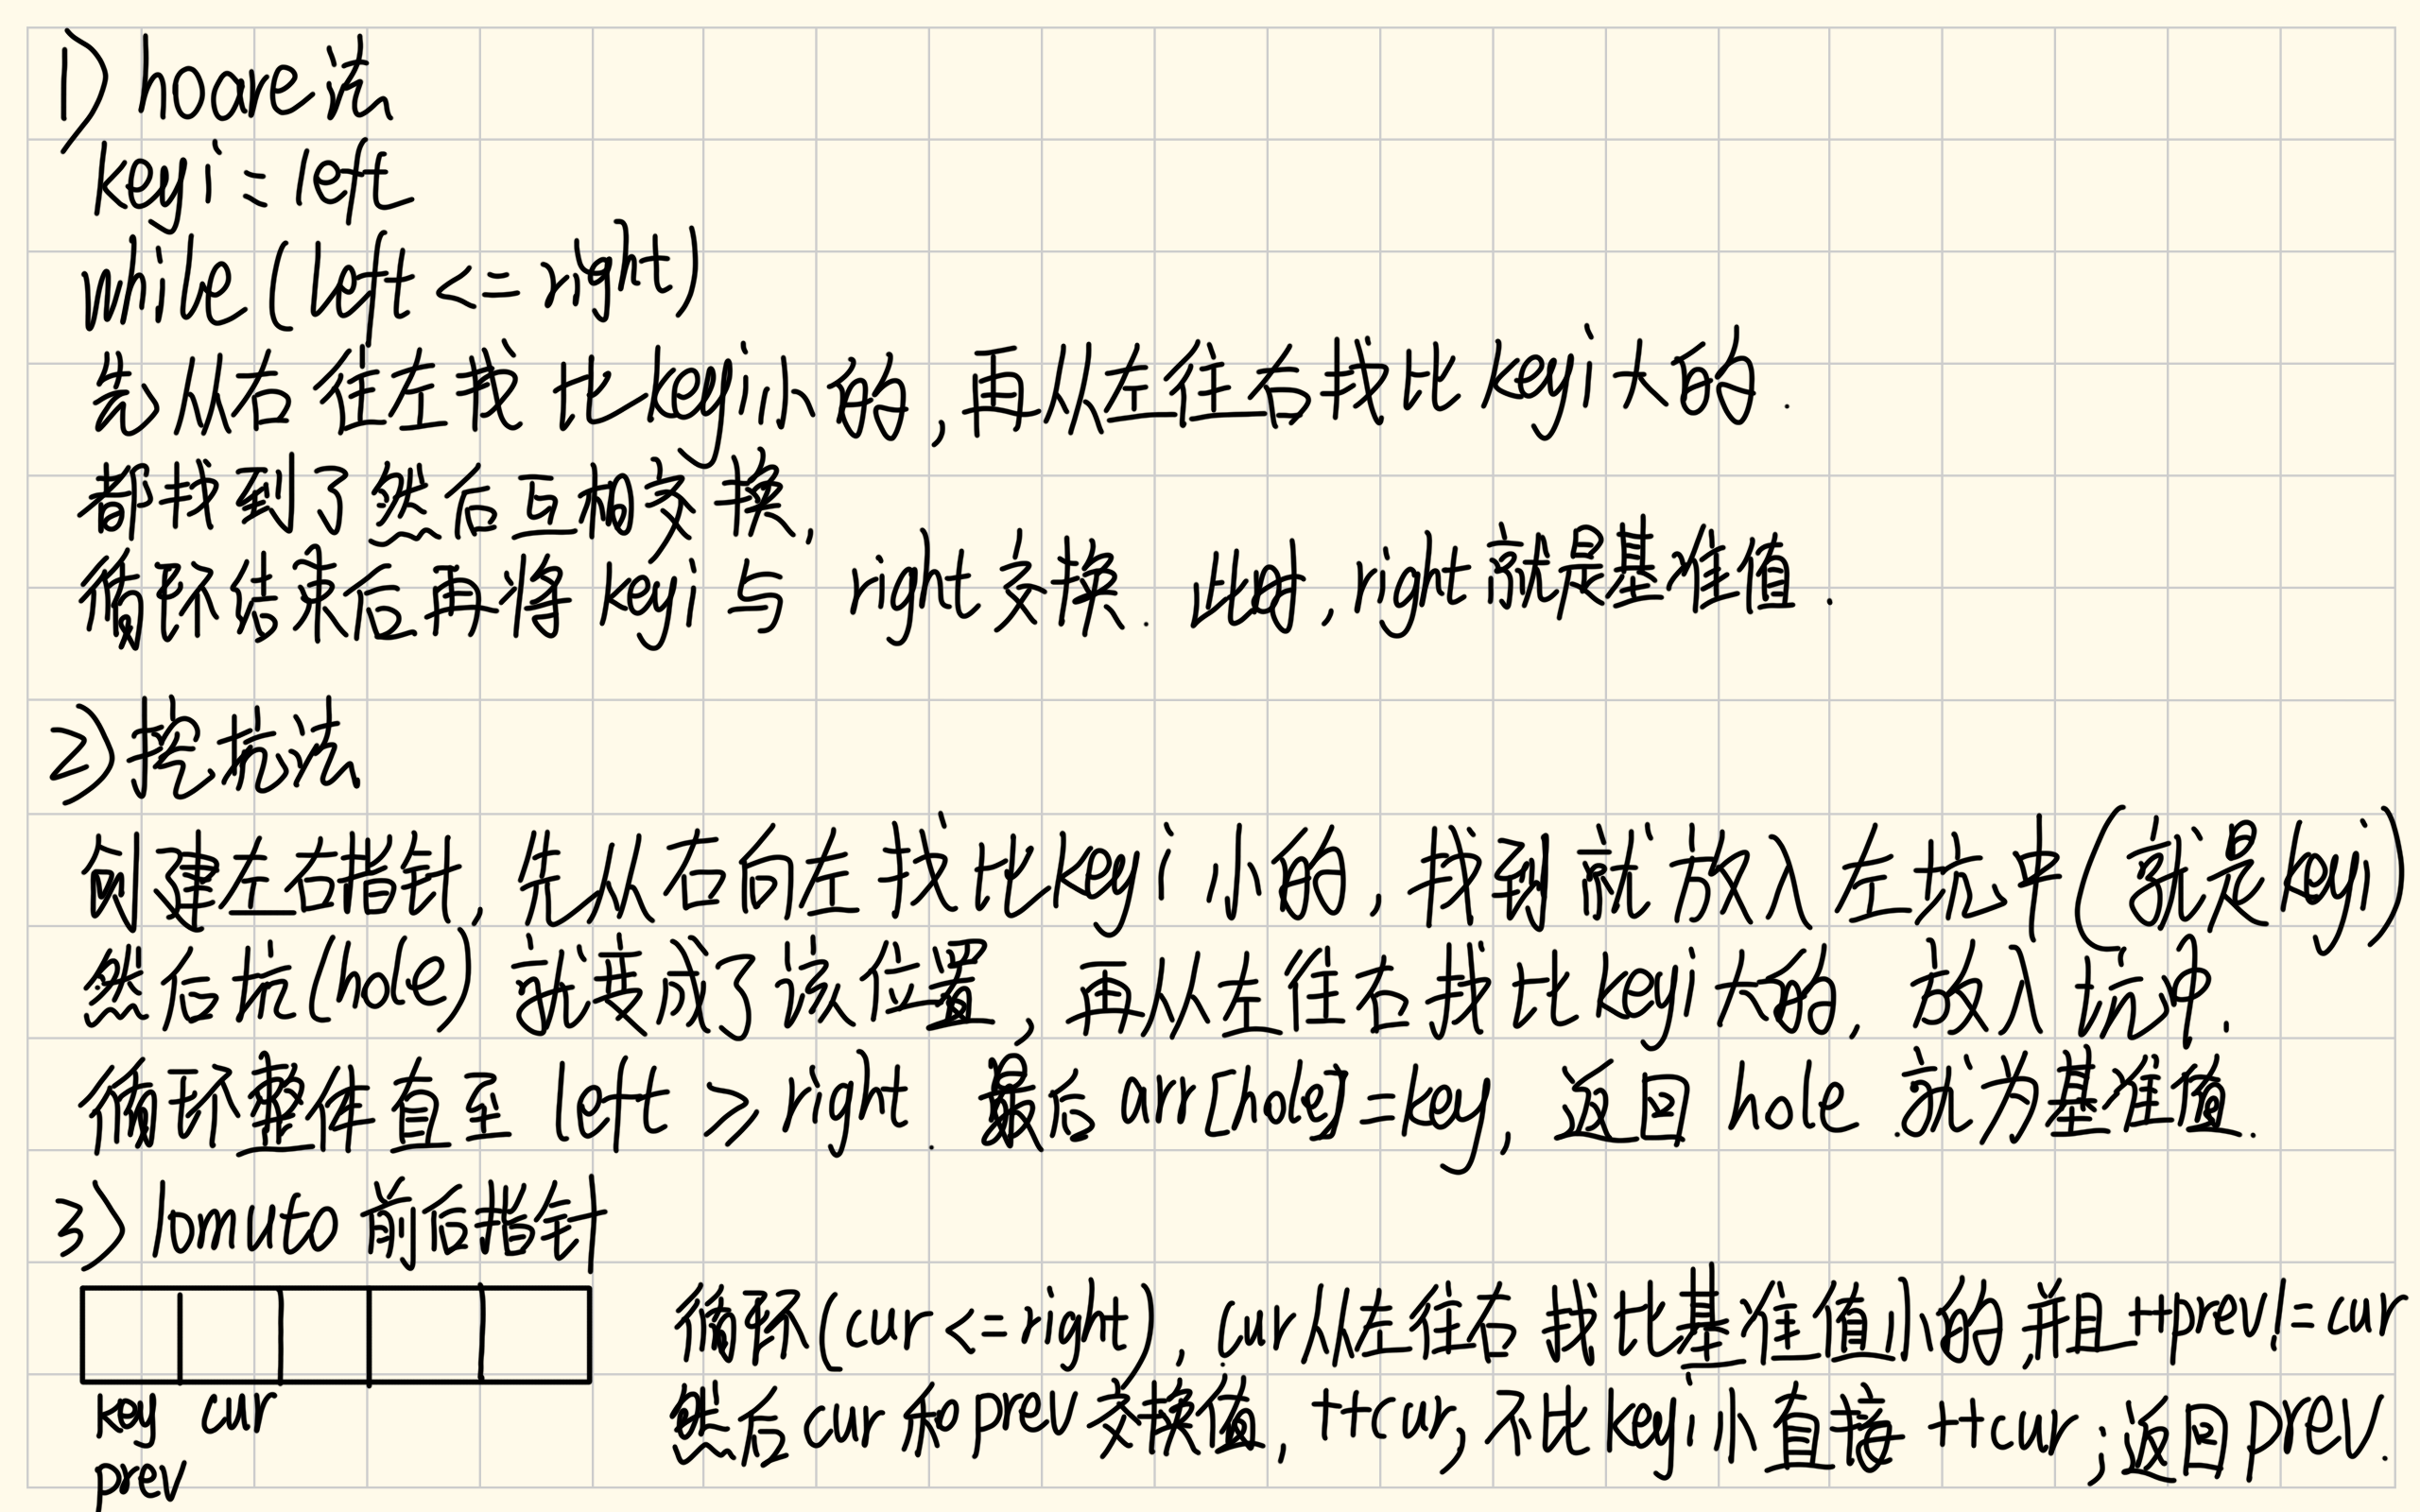 1) hoare法
keyi = left
while (left <= right)
先从右往左找比keyi小的,再从左往右找比keyi大的.
都找到了然后互相交换,
循环结束后再将 keyi 与 right 交换. 此时, right 就是基准值.
2) 挖坑法
创建左右指针, 先从右向左找比keyi小的, 找到就放入左坑中(就是keyi)
然后坑(hole)就变成了该位置, 再从左往右找比keyi大的, 放入坑中.
循环整体直至 left ≥ right. 最后 arr[hole]=key, 返回 hole 就为基准值.
3) lomuto 前后指针
循环(cur <= right), cur从左往右找比基准值小的,并且 ++prev!=cur
然后 cur 和 prev 交换值, ++cur; 不比keyi小直接 ++cur; 返回prev.
key cur
prev